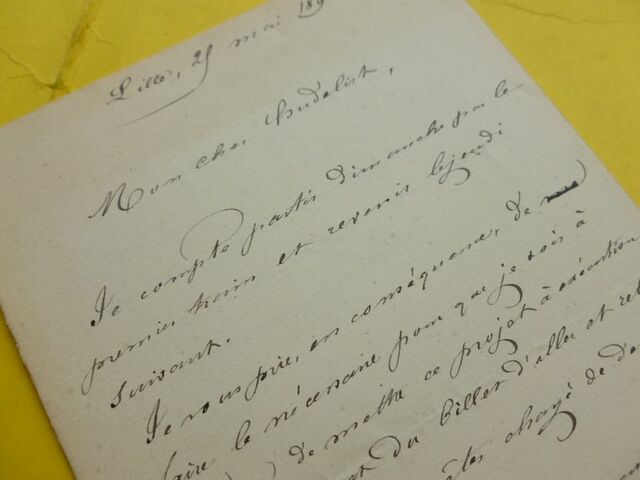 Lille, 25 mai 189
Mon cher Hudelist,
Je compte partir dimanche par le
premier train et revenir le jeudi
suivant.
Je vous prie, en conséquence, de
faire le nécessaire pour que je sois à
de mettre ce projet à exécution
du billet d'aller et ret
chargé de de